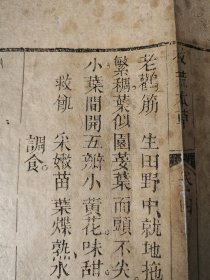 老鸛筋 生田野中就地拖
繁稠葉似園荽葉而頭不尖
小葉間開五瓣小黃花味甜
救飢 采嫩苗葉煠熟水
調食